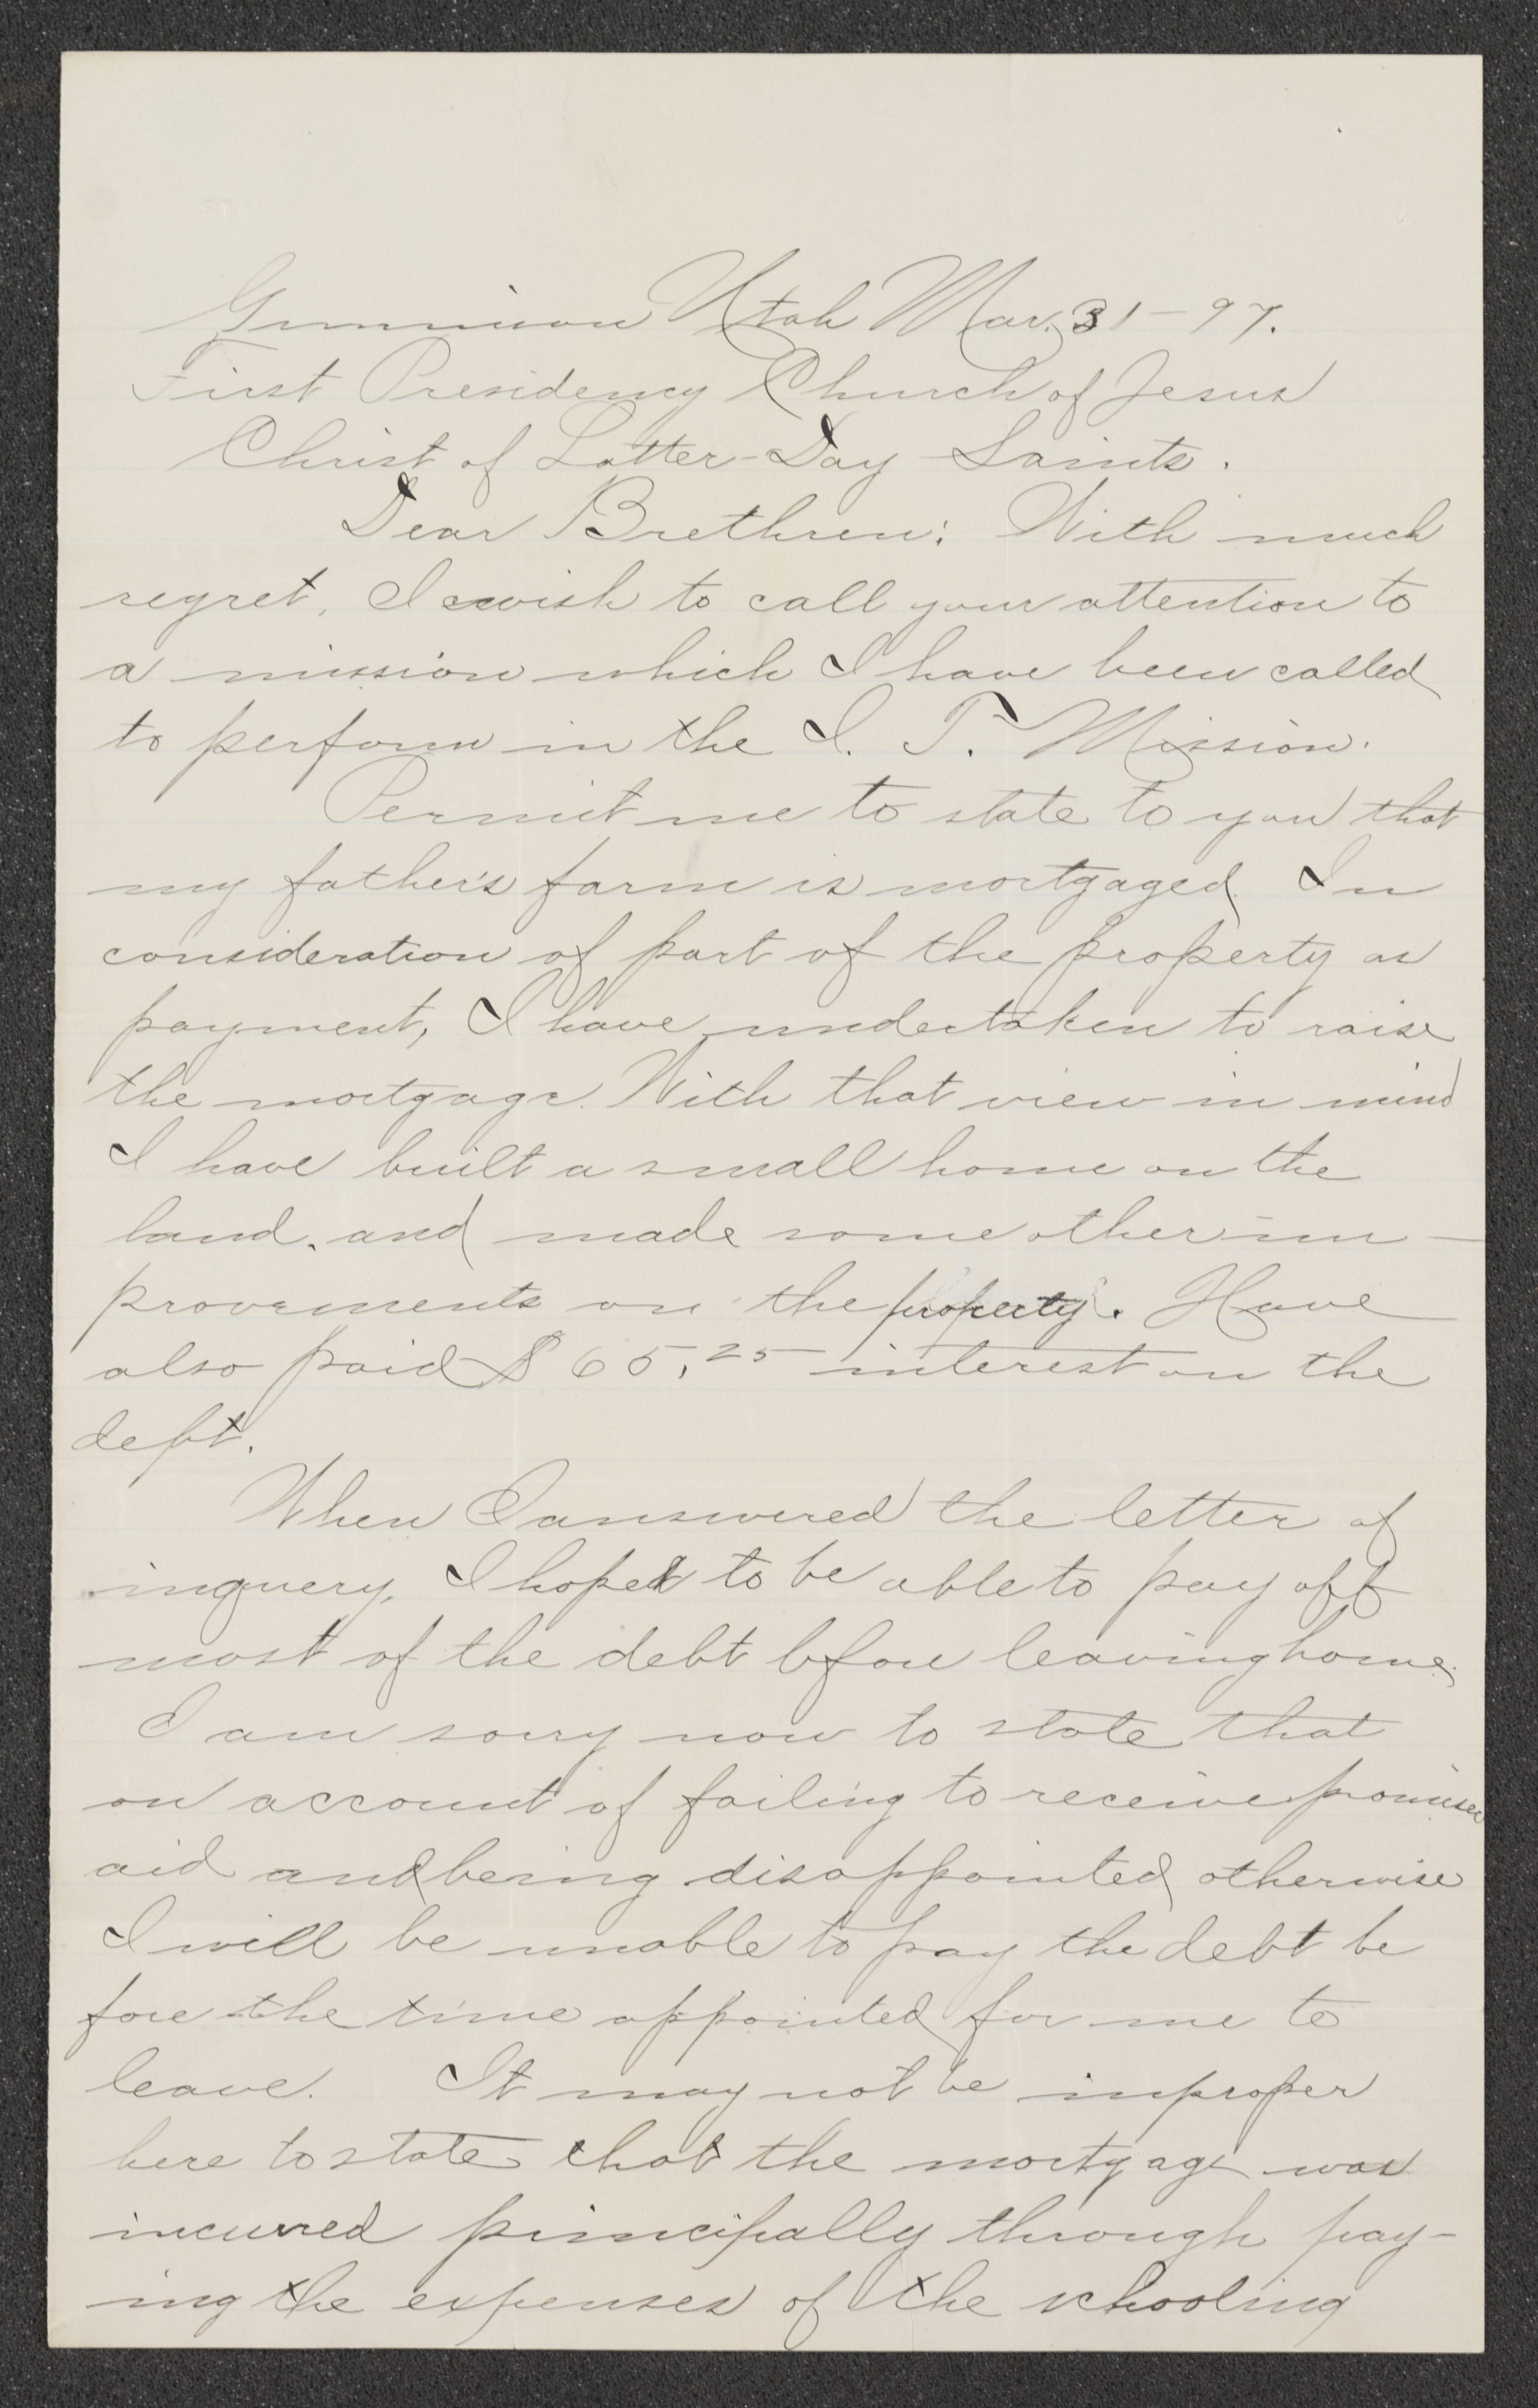 Gunnison Utah Mar. 31-97.
First Presidency Church of Jesus
Christ of Latter-Day Saints.
Dear Brethren: With much
regret, I wish to call your attention to
a mission which I have been called
to perform in the I. T. Mission.
Permit me to state to you that
my father's farm is mortgaged. In
consideration of part of the property as
payment, I have undertaken to raise
the mortgage. With that view in mind
I have built a small home on the
land, and made some other im-
provements on the property. Have
also paid $65.25 interest on the
dept.
When I answered the letter of
inquery, I hoped to be able to pay off
most of the debt bfore leaving home.
I am sorry now to state that
on account of failing to receive promised
aid and being disappointed otherwise
I will be unable to pay the debt be
fore the time appointed for me to
leave. It may not be inproper
here to state that the mortgage was
incurred principally through pay-
ing the expenses of the schooling